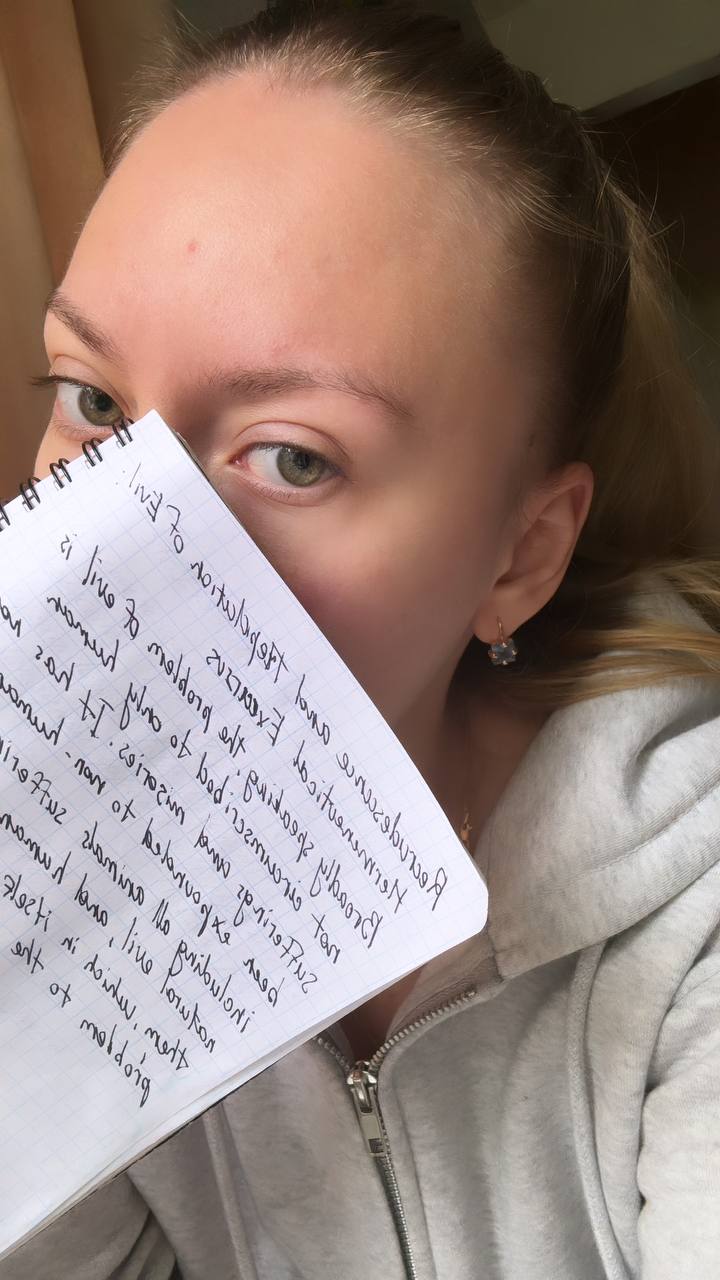 Recrudescence and Repolution of Evil:
Hermeneutical Excursus
Broadly speaking the problem of evil is
not circumscribed to only human
sufferings and miseries. It has
been expounded to non-human
including all animals
natural evil, and human
them, which in itself
problem to the